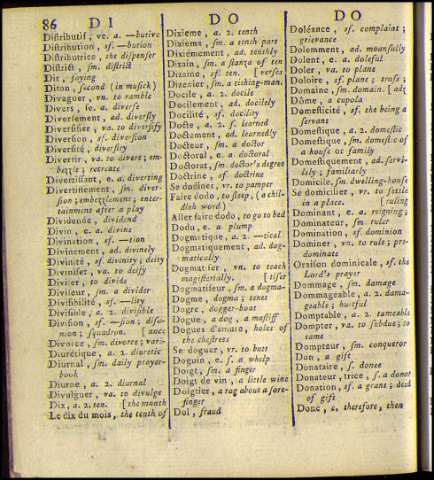 86 D I D O D O
Diſtributif, ve. a. —butive
Diſtribution, sf. —bution
Diſtributrice, the diſpenſer
Diſtrict, ſm. diſtrict
Dit, ſaying
Diton, ſecond (in muſick)
Divaguer, vn. to ramble
Divers, ſe, a. diverſe
Diverſement, ad. diverſly
Diverſifier; va. to diverſify
Diverſion, sf. diverſion
Diverſité, diverſity
Divertir, va. to divert; em-
bezzle; recreate
Divertiſſant, e, a. diverting
Divertiſſement, ſm. diver-
ſion; embezzlement; enter-
tainment after a play
Dividende, dividend
Divin, e, a. divine
Divination, sf. —tion
Divinement, ad. divinely
Divinité, sf. divinity; deity
Diviniſer, va. to deify
Diviſer, to divide
Diviſeur, ſm. a divider
Diviſibilité, sf. —lity
Diviſible, a. 2. diviſible
Diviſion, sf. —ſion; diſſu-
nion; ſquadron. [ance
Divorce, ſm. divorce; vari-
Diurétique, a. 2. diuretic
Diurnal, ſm. daily prayer-
book
Diurne, a. 2. diurnal
Divulguer, va. to divulge
Dix, a. 2. ten. [the month
Le dix du mois, the tenth of
Dixieme, a. 2. tenth
Dixieme, ſm. a tenth part
Dixiémement, ad. tenthly
Dizain, ſm. a ſtanza of ten
Dizaine, sf. ten. [verſes
Dizenier, ſm. a tithing-man.
Docile, a. 2. docile
Docilement, ad. docilely
Docilité, sf. docility
Docte, a. 2. ſ. learned
Doctement, ad. learnedly
Docteur, ſm. a doctor
Doctoral, e, a. doctoral
Doctorat, ſm. doctor's degree
Doctrine, sf. doctrine
Se dodiner, vr. to pamper
Faire dodo, to ſleep, (a chil-
diſh word)
Aller faire dodo, to go to bed
Dodu, e, a. plump
Dogmatique, a. 2. —tical
Dogmatiquement, ad. dog-
matically
Dogmatiſer, vn. to teach
magiſterially. [tiſer
Dogmatiſeur, ſm. a dogma-
Dogme, dogma; tenet
Dogre, dogger-boat
Dogue, a dog, a maſtiff
Dogues d'amure, holes of
the cheſtrees
Se doguer, vr. to butt
Doguin, e, ſ. a whelp
Doigt, ſm. a finger
Doigt de vin, a little wine
Doigtier, a rag about a fore-
finger
Dol, fraud
Doléance, sf. complaint;
grievance
Dolemment, ad. moanfully
Dolent, e, a. doleful
Doler, va. to plane
Doloire, sf. plane; truſs;
Domaine, ſm. domain. [adz
Dôme, a cupola
Domeſticité, sf. the being a
ſervant
Domeſtique, a. 2. domeſtic
Domeſtique, ſm. domeſtic of
a houſe or family
Domeſtiquement, ad. ſervi-
lely; familiarly
Domicile, ſm. dwelling-houſe
Se domicilier, vr. to ſettle
in a place. [ruling
Dominant, e, a. reigning;
Dominateur, ſm. ruler
Domination, sf. dominion
Dominer, vn. to rule; pre-
dominate
Oraiſon dominicale, sf. the
Lord's prayer
Dommage, ſm. damage
Dommageable, a. 2. dama-
geable; hurtful
Domptable, a. 2. tameable
Dompter, va. to ſubdue; to
tame
Dompteur, ſm. conqueror
Don, a gift
Donataire, ſ. donee
Donateur, trice, ſ. a donor
Donation, sf. a grant; deed
of gift
Donc, c. therefore, then